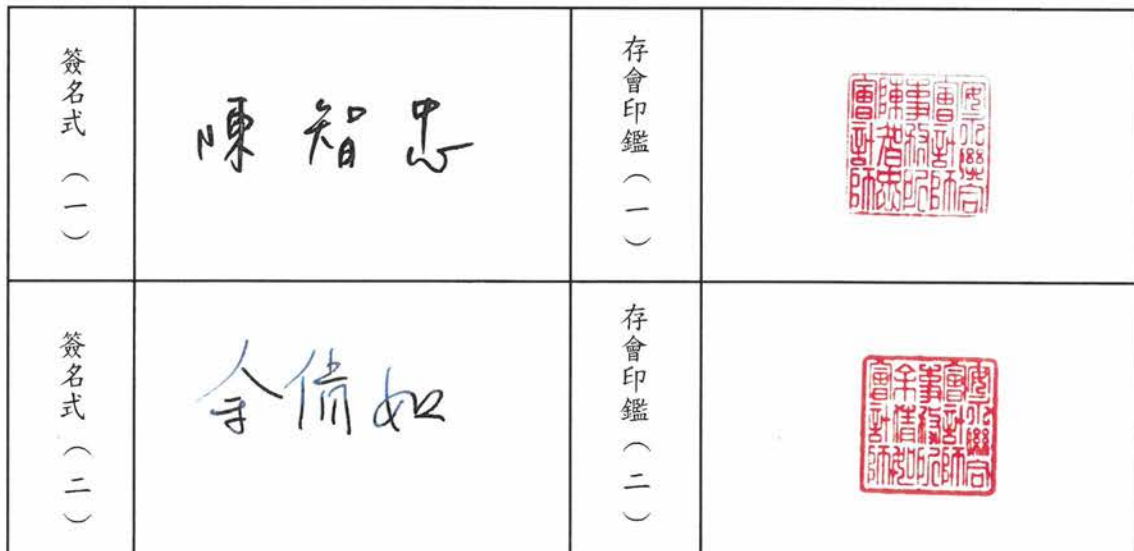 簽名式（一）
陳智忠
存會印鑑（一）
安永聯合
會計師
事務所
陳智忠
會計師
簽名式（二）
余倩如
存會印鑑（二）
安永聯合
會計師
事務所
余倩如
會計師